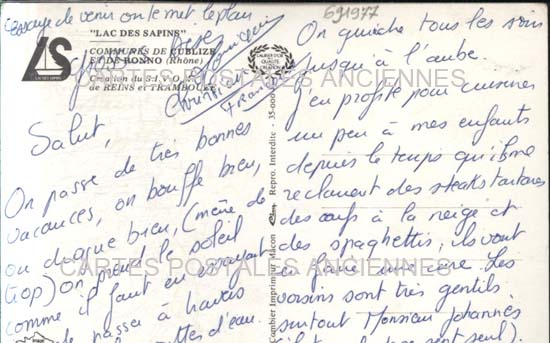 essaye de venir on te met le plan
691977
"LAC DES SAPINS"
COMMUNES DE CUBLIZE
ET DE RONNO (Rhône)
Création du S.I.V.O.
de REINS et TRAMBOUZE
LAURIER D'OR
DE LA QUALITÉ
Salut,
On passe de très bonnes
vacances, on bouffe bien,
on drague bien, (même de
trop) on prend le soleil
comme il faut en essayant
de passer à travers
gouttes d'eau.
Combier Imprimeur Macon
Repro. Interdite - 35-000
On guiche tous les soirs
jusqu'à l'aube.
J'en profite pour cuisiner
un peu à mes enfants
depuis le temps qu'ils me
réclament des steaks tartares
des oeufs à la neige et
des spaghettis, ils vont
en faire une cure. Les
voisins sont très gentils
surtout Monsieur Johannès
seul).
CARTES POSTALES ANCIENNES
CARTES POSTALES ANCIENNES